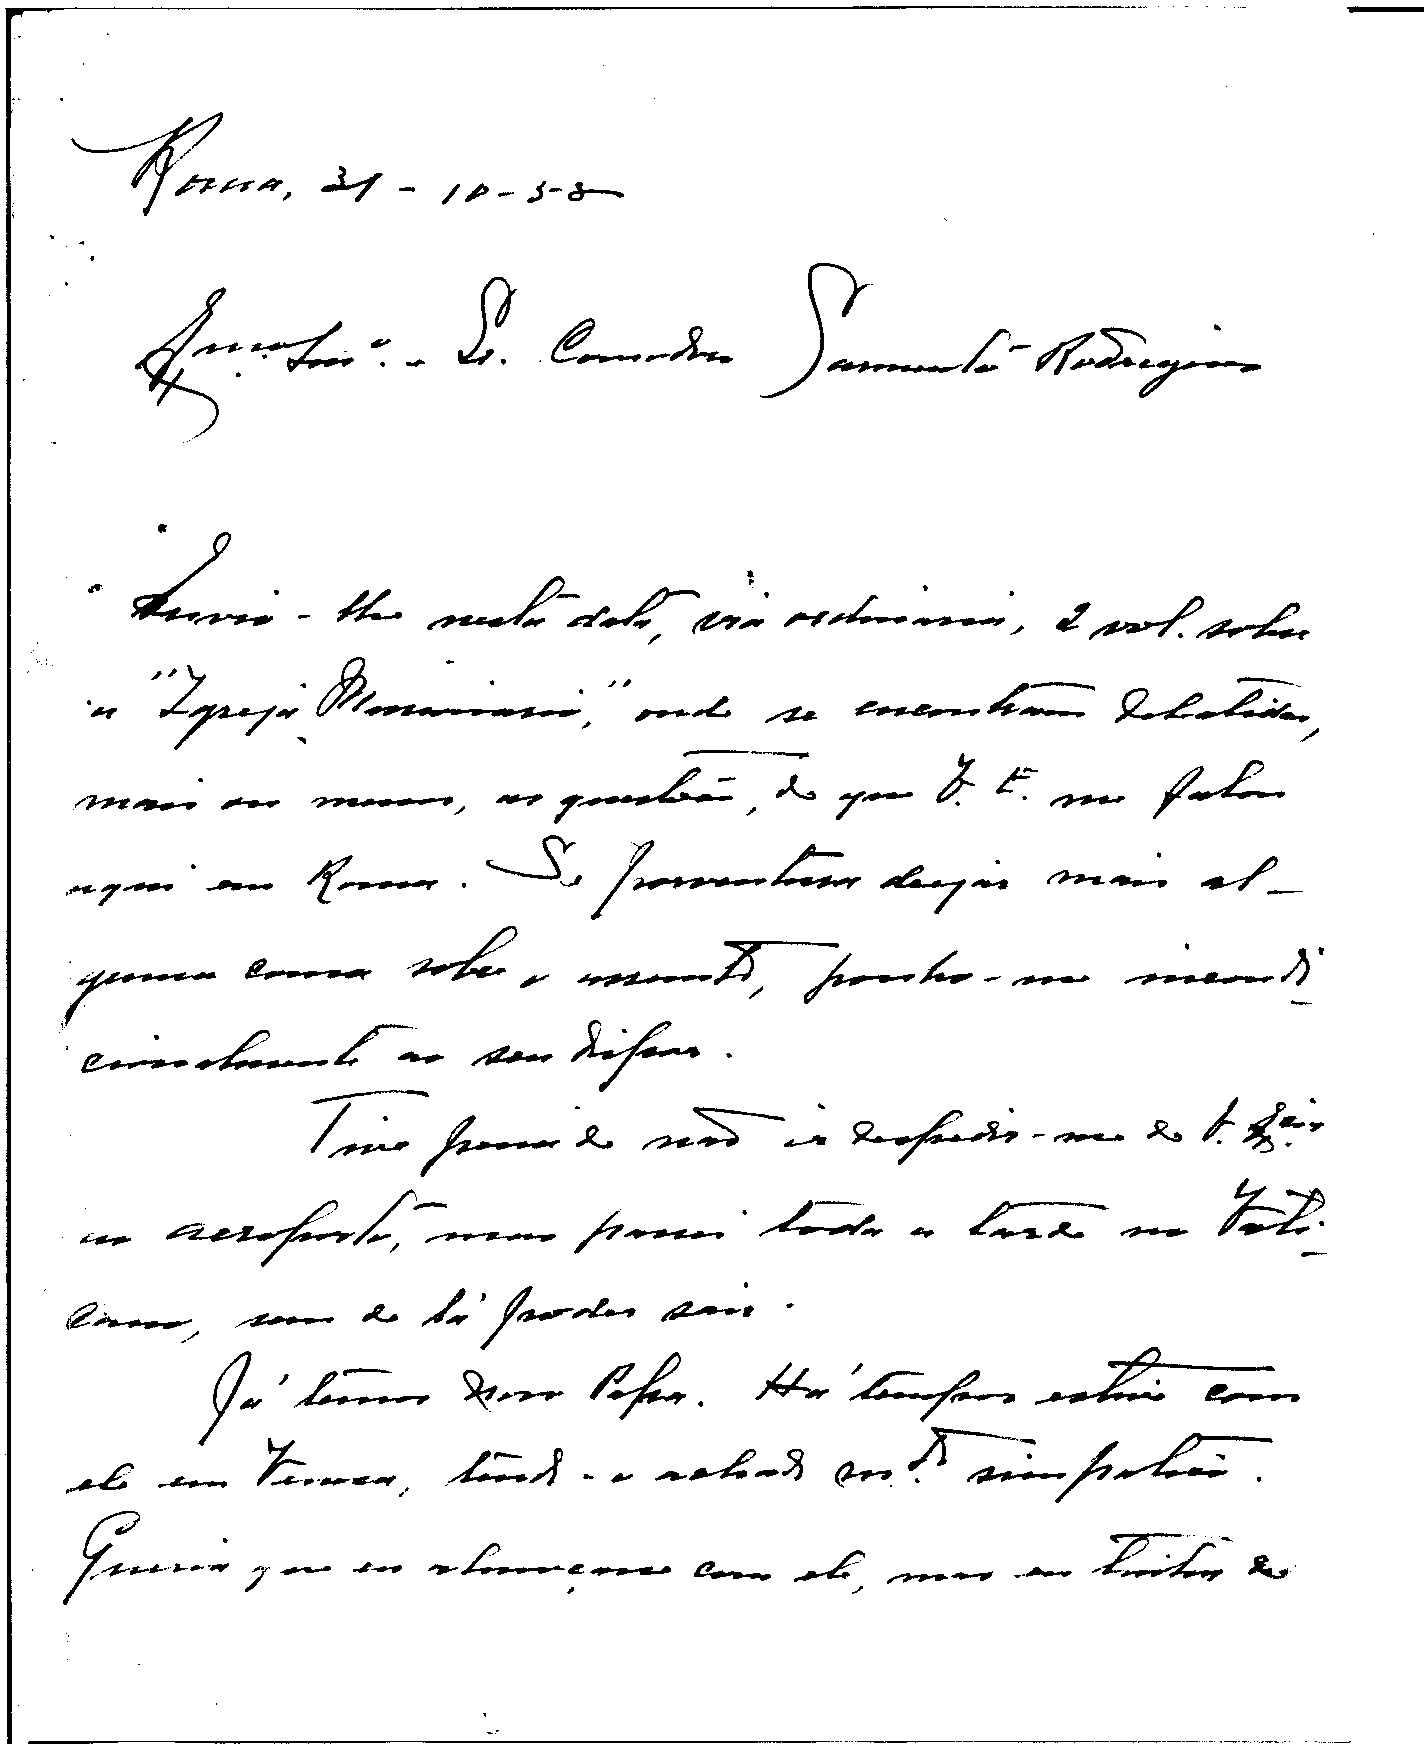 Roma, 31-10-58
Exmo. Snr. e Sr. Comodoro Sarmento Rodrigues
Envio-lhe nesta data, via ordinaria, 2 vol. sobre
a "Igreja Missionaria," onde se encontram debatidas,
mais ou menos, as questões, de que V. E. me falou
aqui em Roma. Se porventura desejar mais al-
guma cousa sobre o assunto, ponho-me incondi-
cionalmente ao seu dispor.
Tive pena de não ir despedir-me de V. Excia
ao aeroporto, mas passei toda a tarde no Vati-
cano, sem de lá poder sair.
Já temos novo Papa. Há tempos estive com
ele em Veneza, tendo-o achado mto. simpatico.
Queria que eu almoçasse com ele, mas eu tinha de